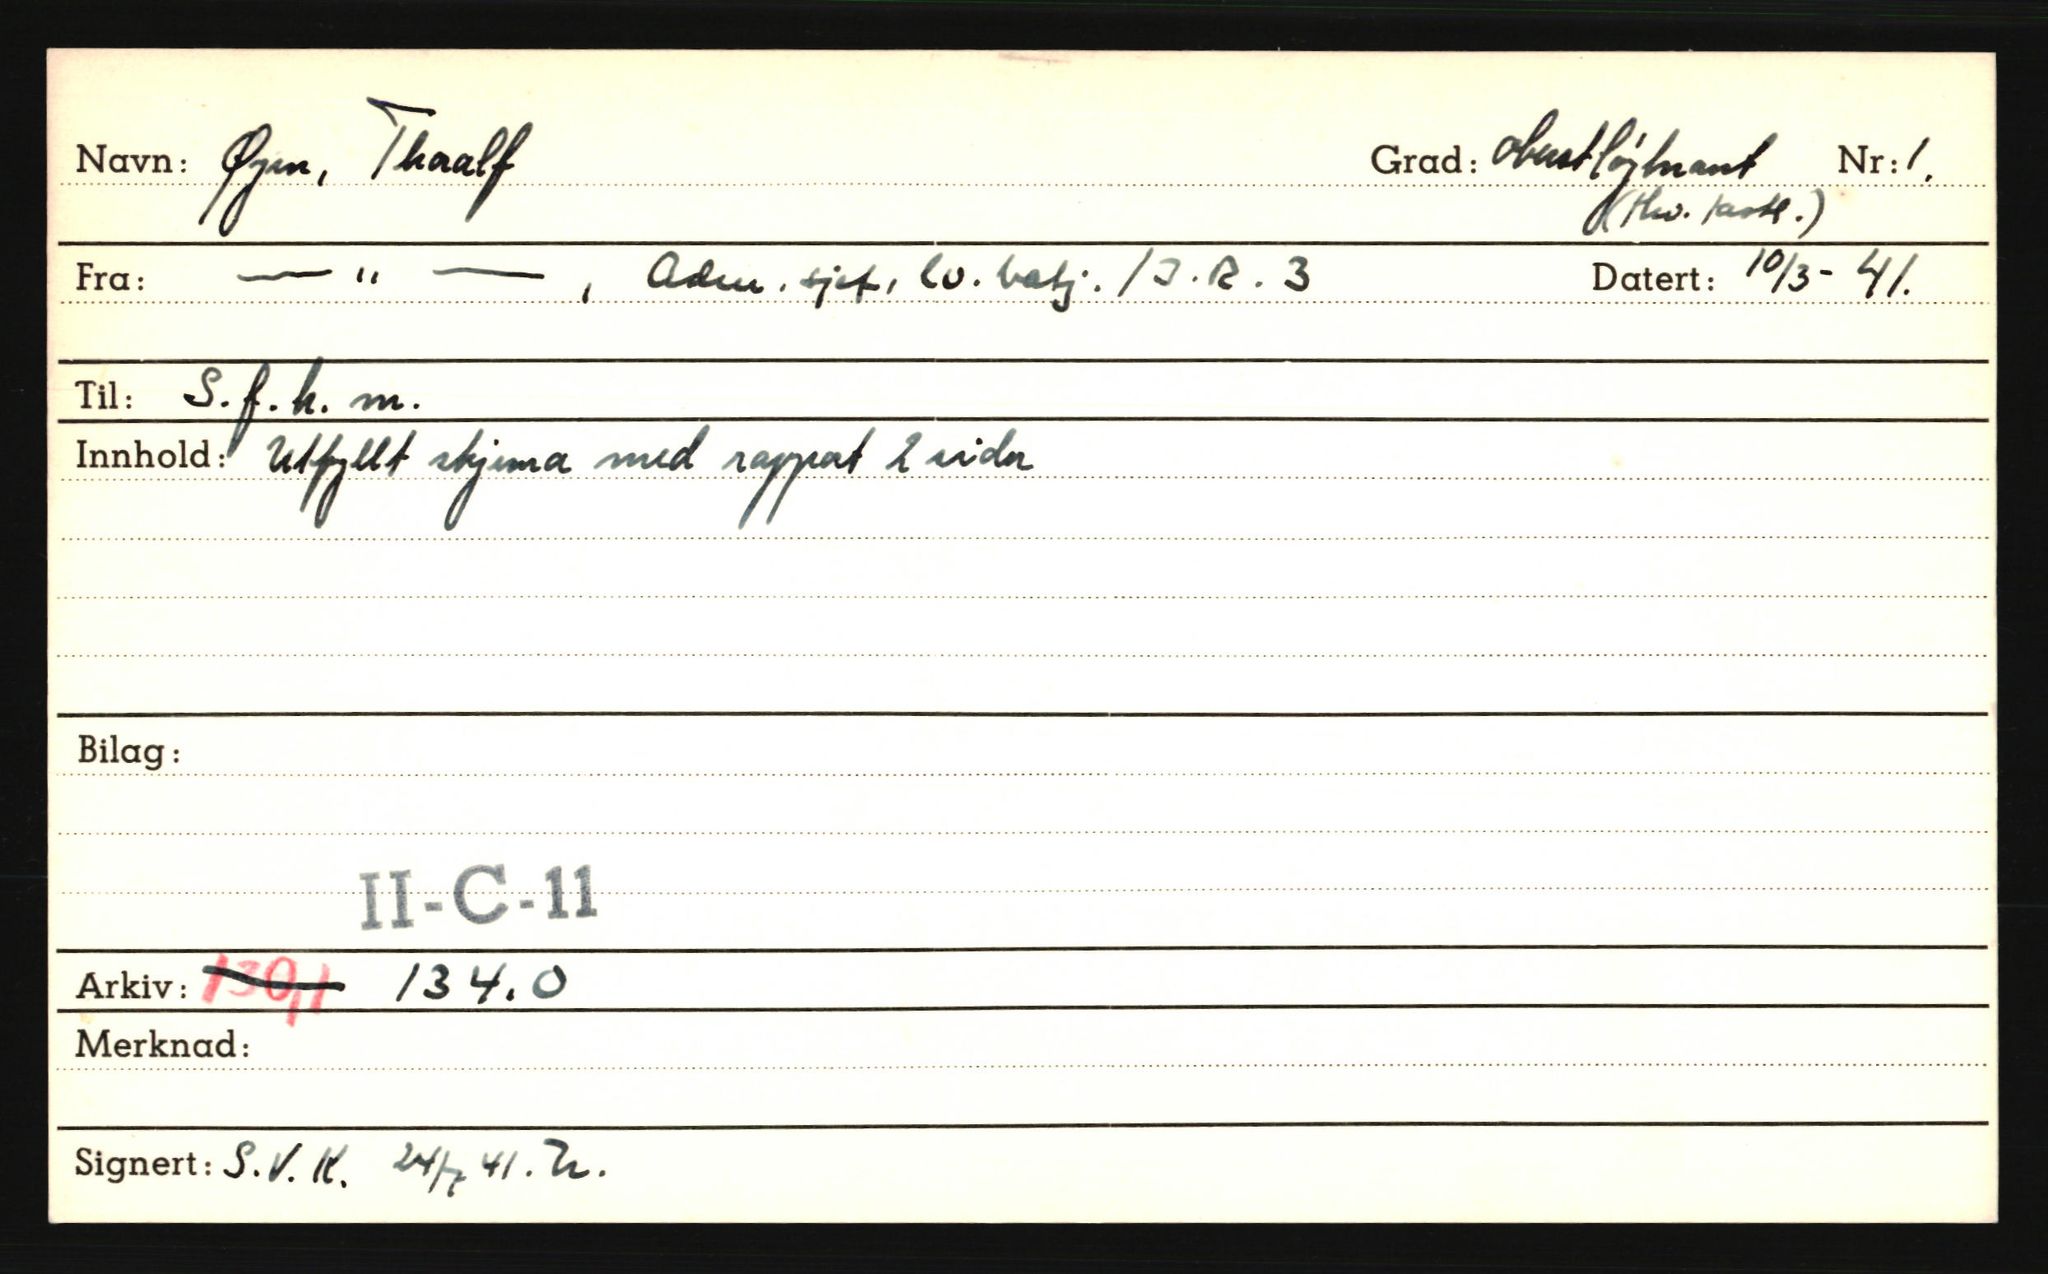 Navn: Øyen, Thoralf Grad: oberstløjtnant Nr: 1.
Fra: — " — , Adm. sjef, lv. batj. / I.R. 3 Datert: 10/3 - 41.
Til: S.f.h.m.
Innhold: Utfyllt skjema med rapport 2 sider
Bilag:
II-C-11
Arkiv: 130,1 134.0
Merknad:
Signert: S.V.K. 24/7 41.